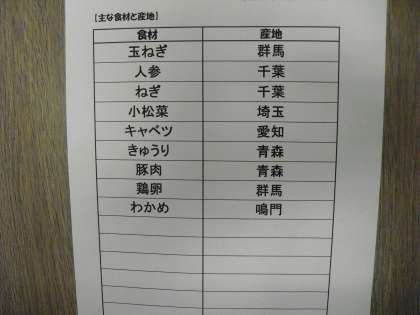 【主な食材と産地】
食材 産地
玉ねぎ 群馬
人参 千葉
ねぎ 千葉
小松菜 埼玉
キャベツ 愛知
きゅうり 青森
豚肉 青森
鶏卵 群馬
わかめ 鳴門